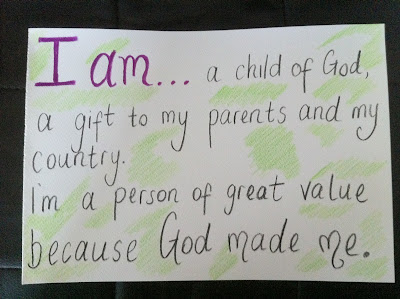 I am... a child of God,
a gift to my parents and my
country.
I'm a person of great value
because God made me.